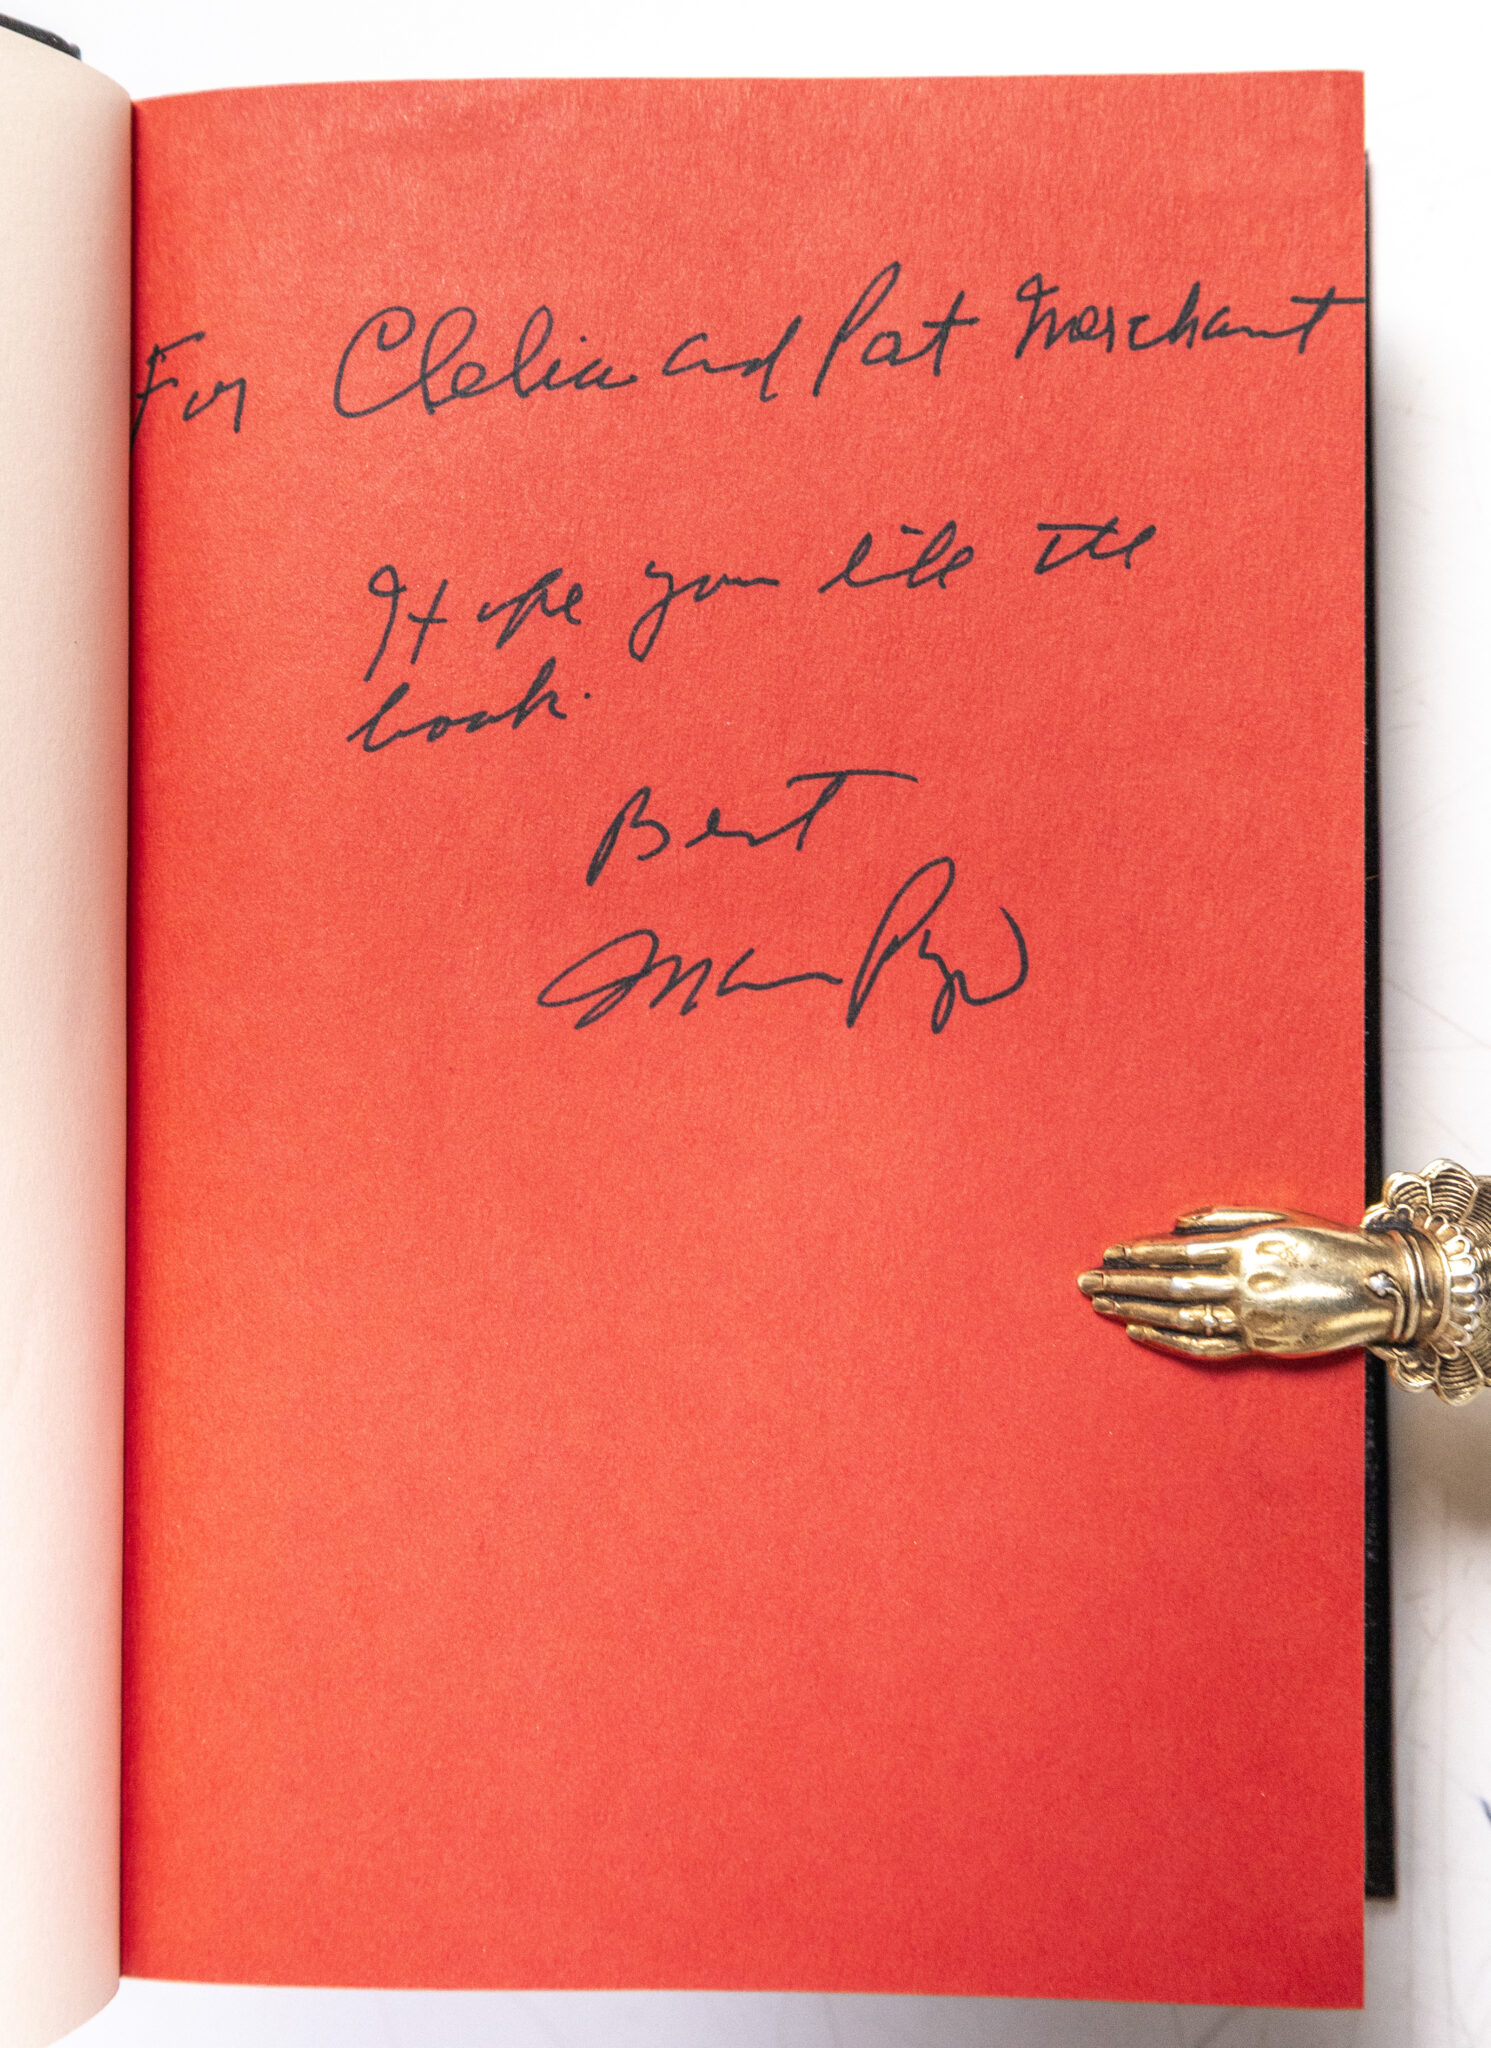 For Clelia and Pat Merchant
Hope you like the
book.
Best
Mario Puzo